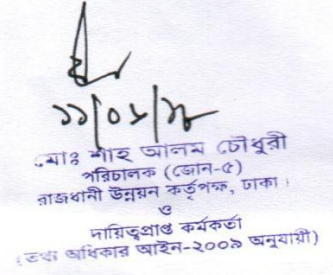 মোঃ শাহ আলম চৌধুরী
পরিচালক (জোন-৫)
রাজধানী উন্নয়ন কর্তৃপক্ষ, ঢাকা।
ও
দায়িত্বপ্রাপ্ত কর্মকর্তা
(তথ্য অধিকার আইন-২০০৯ অনুযায়ী)